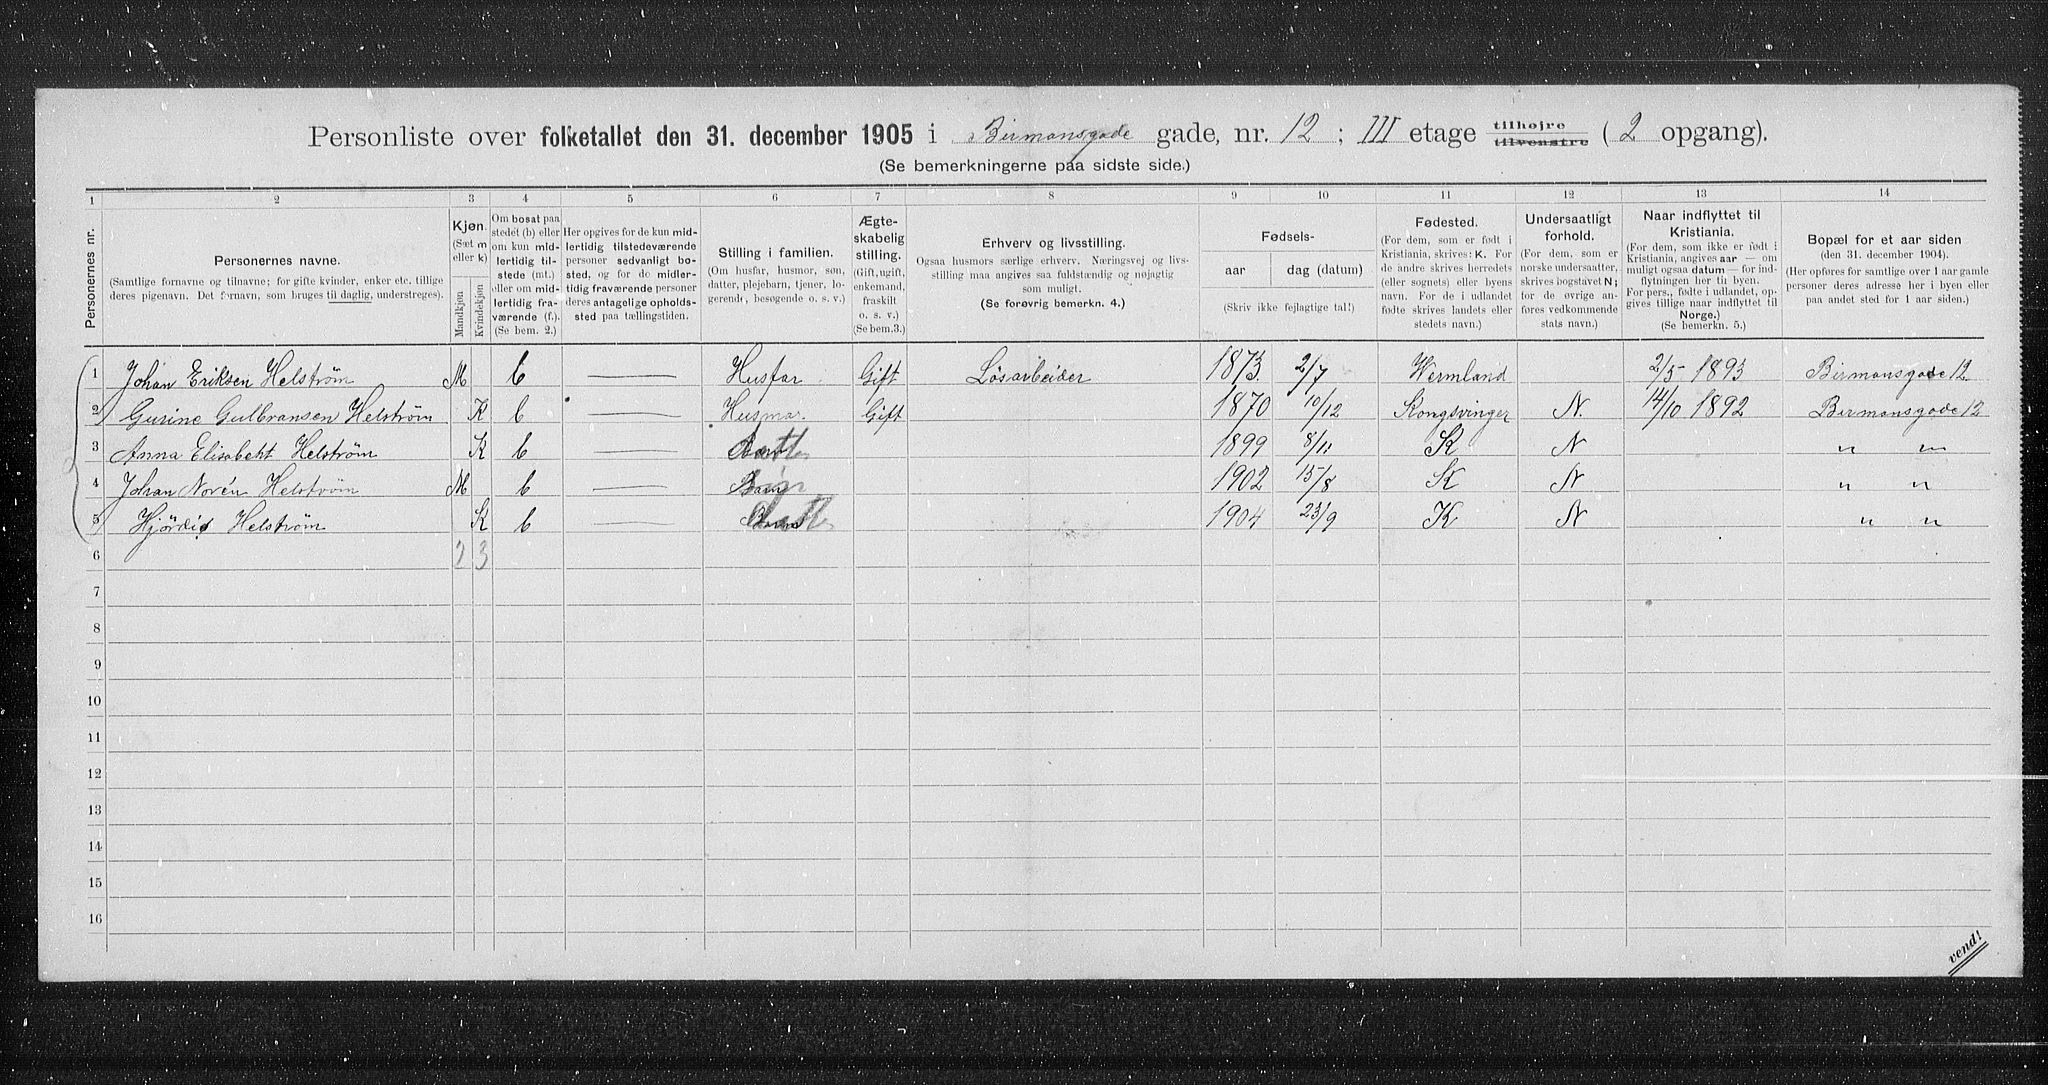 Personliste over folketallet den 31. december 1905 i Birmansgade gade, nr. 12 ; III etage tilhøjre tilvenstre ( 2 opgang).
(Se bemerkningerne paa sidste side.)
1 2 3 4 5 6 7 8 9 10 11 12 13 14
Personernes nr.
Personernes navne.
(Samtlige fornavne og tilnavne; for gifte kvinder, enker etc. tillige
deres pigenavn. Det fornavn, som bruges til daglig, understreges).
Kjøn.
(Sæt m
eller k)
Mandkjøn
Kvindekjøn
Om bosat paa
stedet (b) eller
om kun mid-
lertidig til-
stede (mt.)
eller om mid-
lertidig fra-
værende (f.).
(Se bem. 2.)
Her opgives for de kun mid-
lertidig tilstedeværende
personer sedvanligt bo-
sted, og for de midler-
tidig fraværende personer
deres antagelige opholds-
sted paa tællingstiden.
Stilling i familien.
(Om husfar, husmor, søn,
datter, plejebarn, tjener, lo-
gerende, besøgende o. s. v.)
Ægte-
skabelig
stilling.
(Gift, ugift,
enkemand,
fraskilt
o. s. v.)
(Se bem.3.)
Erhverv og livsstilling.
Ogsaa husmors særlige erhverv. Næringsvej og livs-
stilling maa angives saa fuldstændig og nøjagtig
som muligt.
(Se forøvrig bemerkn. 4.)
Fødsels-
aar dag (datum)
(Skriv ikke fejlagtige tal!)
Fødested.
(For dem, som er født i
Kristiania, skrives: K. For
de andre skrives herredets
(eller sognets) eller byens
navn. For de i udlandet
fødte skrives landets eller
stedets navn.)
Undersaatligt
forhold.
(For dem, som er
norske undersaatter,
skrives bogstavet N;
for de øvrige an-
føres vedkommende
stats navn.)
Naar indflyttet til
Kristiania.
(For dem, som ikke er født i
Kristiania, angives aar — om
muligt ogsaa datum — for ind-
flytningen her til byen.
For pers., fødte i udlandet, op-
gives tillige naar indflyttet til
Norge.)
(Se bemerkn. 5.)
Bopæl for et aar siden
(den 31. december 1904).
(Her opføres for samtlige over 1 aar gamle
personer deres adresse her i byen eller
paa andet sted for 1 aar siden.)
1 Johan Eriksen Helstrøm M b — Husfar Gift Løsarbeider 1873. 2/7 Wermland 2/5 1893 Birmansgade 12
2 Gusine Gulbransen Helstrøm K b — Husmor. Gift 1870 10/12 Kongsvinger N. 14/10 1892 Birmansgade 12
3 Anna Elisabeht Helstrøm K b — Datter 1899 8/11 K N " "
4 Johan Norén Helstrøm M b — Barn 1902 15/8 K N " "
5 Hjørdis Helstrøm K b — Barn Datter 1904 23/9 K N " "
6 2 3
7
8
9
10
11
12
13
14
15
16
vend!